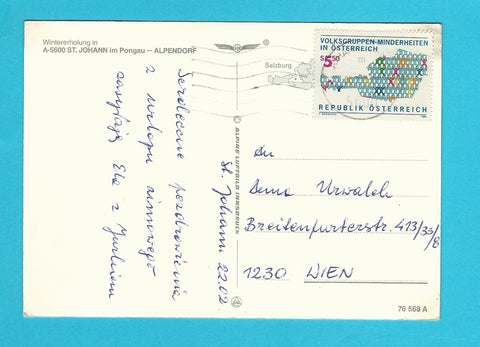 Wintererholung in
A-5600 ST. JOHANN im Pongau – ALPENDORF
®
Salzburg
VOLKSGRUPPEN·MINDERHEITEN
IN ÖSTERREICH
S 5.50
REPUBLIK ÖSTERREICH
Serdeczne pozdrowienia
z urlopu zimowego
zasyłają Ela z
St. Johann 22.02.
© ALPINE LUFTBILD INNSBRUCK
An
Urwalek
Breitenfurterstr. 413/33/8
1230 WIEN
76 568 A